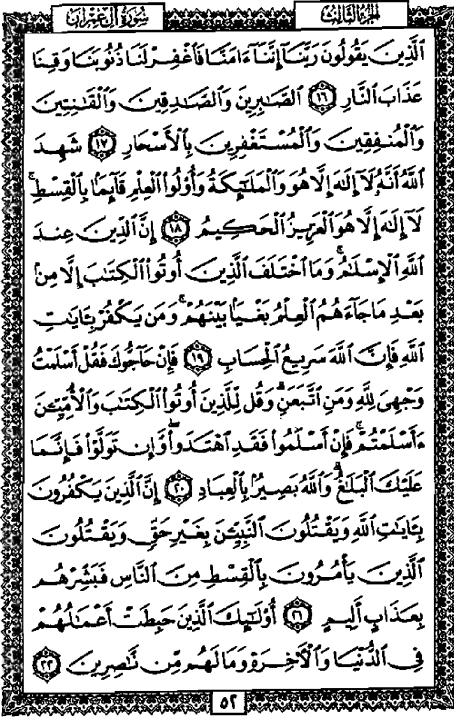 الجزء الثالث
سورة آل عمران
الَّذِينَ يَقُولُونَ رَبَّنَا إِنَّنَا ءَامَنَّا فَاغْفِرْ لَنَا ذُنُوبَنَا وَقِنَا
عَذَابَ النَّارِ ١٦ الصَّابِرِينَ وَالصَّادِقِينَ وَالْقَانِتِينَ
وَالْمُنفِقِينَ وَالْمُسْتَغْفِرِينَ بِالْأَسْحَارِ ١٧ شَهِدَ
اللَّهُ أَنَّهُ لَا إِلَٰهَ إِلَّا هُوَ وَالْمَلَائِكَةُ وَأُوْلُوا الْعِلْمِ قَائِمًا بِالْقِسْطِ ۚ
لَا إِلَٰهَ إِلَّا هُوَ الْعَزِيزُ الْحَكِيمُ ١٨ إِنَّ الدِّينَ عِندَ
اللَّهِ الْإِسْلَامُ ۗ وَمَا اخْتَلَفَ الَّذِينَ أُوتُوا الْكِتَابَ إِلَّا مِن
بَعْدِ مَا جَاءَهُمُ الْعِلْمُ بَغْيًا بَيْنَهُمْ ۗ وَمَن يَكْفُرْ بِـَٔايَاتِ
اللَّهِ فَإِنَّ اللَّهَ سَرِيعُ الْحِسَابِ ١٩ فَإِنْ حَاجُّوكَ فَقُلْ أَسْلَمْتُ
وَجْهِيَ لِلَّهِ وَمَنِ اتَّبَعَنِ ۗ وَقُل لِّلَّذِينَ أُوتُوا الْكِتَابَ وَالْأُمِّيِّينَ
ءَأَسْلَمْتُمْ ۚ فَإِنْ أَسْلَمُوا فَقَدِ اهْتَدَوا ۖ وَّإِن تَوَلَّوْا فَإِنَّمَا
عَلَيْكَ الْبَلَاغُ ۗ وَاللَّهُ بَصِيرٌ بِالْعِبَادِ ٢٠ إِنَّ الَّذِينَ يَكْفُرُونَ
بِـَٔايَاتِ اللَّهِ وَيَقْتُلُونَ النَّبِيِّينَ بِغَيْرِ حَقٍّ وَيَقْتُلُونَ
الَّذِينَ يَأْمُرُونَ بِالْقِسْطِ مِنَ النَّاسِ فَبَشِّرْهُم
بِعَذَابٍ أَلِيمٍ ٢١ أُوْلَٰئِكَ الَّذِينَ حَبِطَتْ أَعْمَالُهُمْ
فِي الدُّنْيَا وَالْآخِرَةِ وَمَا لَهُم مِّن نَّاصِرِينَ ٢٢
٥٢